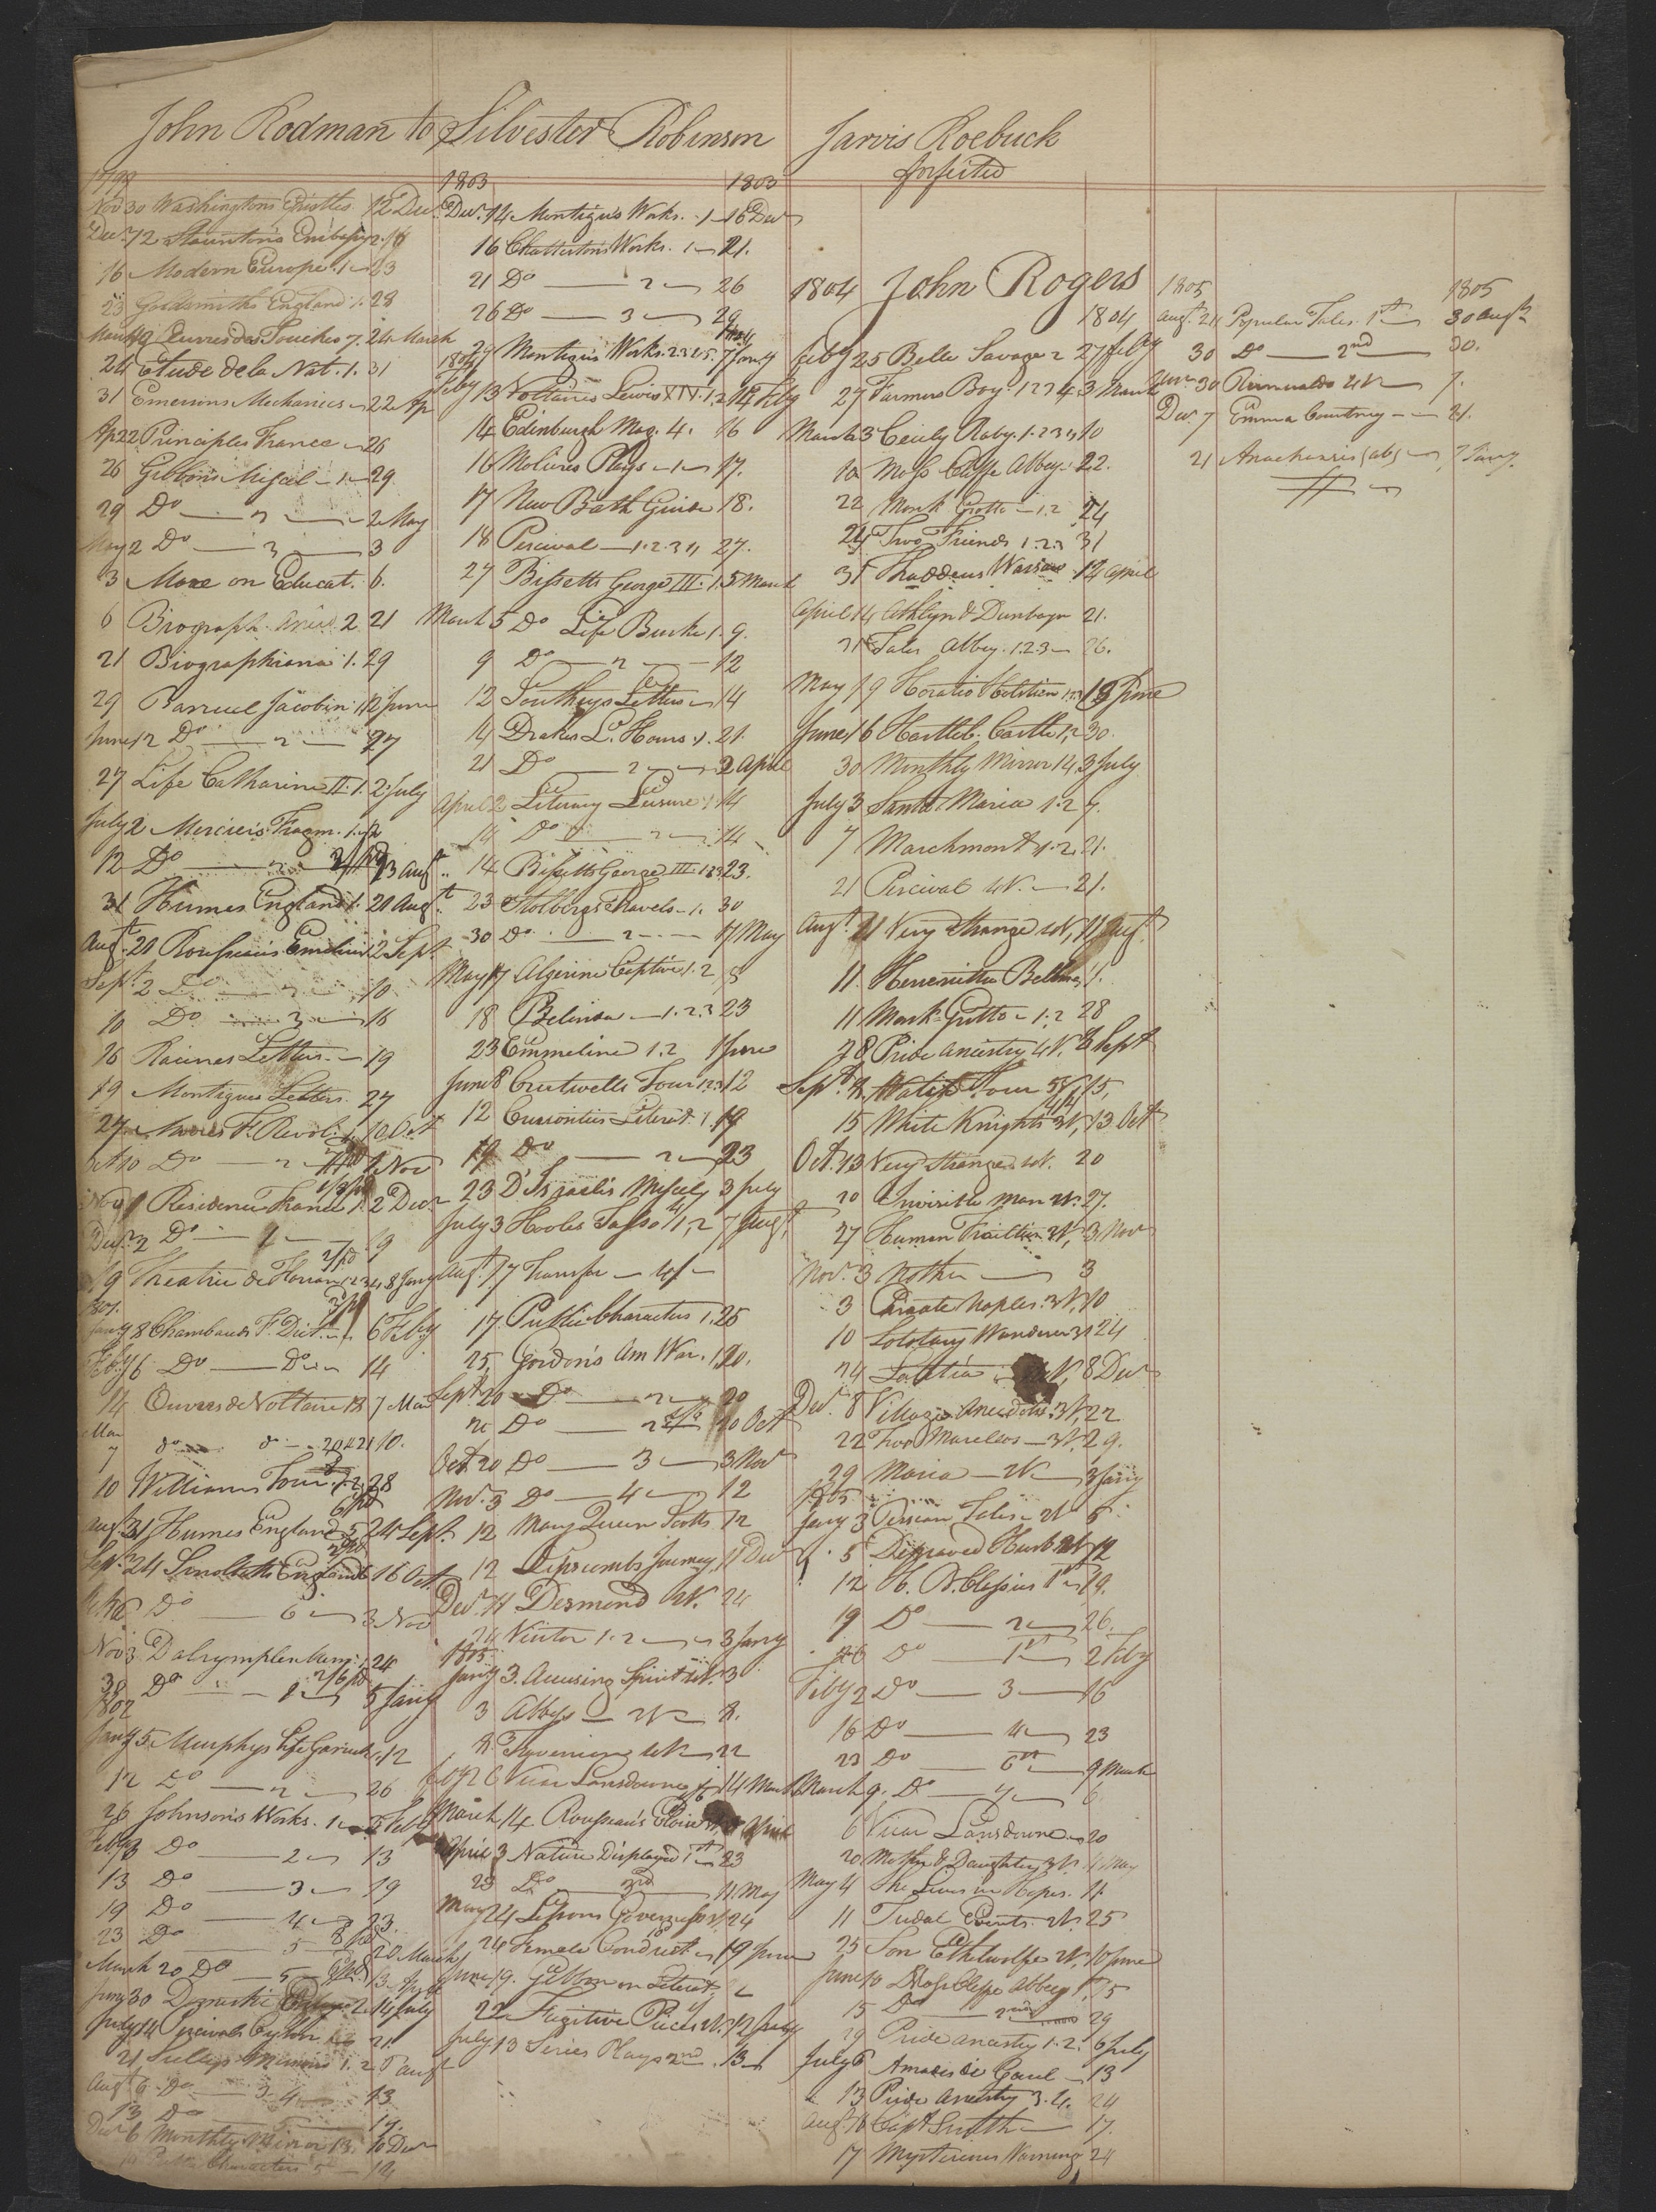 John Rodman to Silvester Robinson
1799
Nov 30 Washingtons Epistles 12 Decr
Decr 12 Staunton's Embassy 2. 16
16 Modern Europe. 1 23
23 Goldsmiths England 1. 28
March 19 des Touches 7. 24 March
24 Etude de la Nat. 1. 31
31 Emersons Mechanics 22 Ap
Ap 22 Principles France 26
26 Gibbons Miscel 1 29
29 Do 2 2 May
May 2 Do 3 3
3 More on Educat. 6.
6 Biograph. Anec. 2 21
21 Biographiana 1. 29
29 Barruel Jacobin 1. 12 June
June 12 Do 2 27
27 Life Catharine II. 1. 2 July
July 2 Mercier's Fragm. 1. 12
12 Do 2 13 Augt
31 Humes England 1. 20 Augt
Augt 20 Rousseau's Emilius 1 2 Sept.
Sept. 2 Do 2 10
10 Do 3 16
16 Racines Letters 19
19 Montagues Letters. 27
27 Moores F. Revol. 1 10 Oct
Oct 10 Do 2 1 Nov
Nov 1 Residence France 1. 2 Decr
Decr 2 Do 2 9
2/ pd
9 Theatre de Florian 1 2 3 4 8 Jany
1801.
Jany 8 Chambauds F. Dict. 6 Feby
Feby 6 Do Do 14
14 Ouvres de Voltaire 18 7 Mar
Mar
7 do do 20 & 21 10.
10 Williams Tour 1. 2 28
6/ pd
Augt 31 Humes England 5 24 Sept.
Sept. 24 Smolletts England 16 Oct
Do 6 3 Nov
Nov 3 Dalrymples Mem. 1 24
2/6 pd
30 Do 2 5 Jany
1802
Jany 5 Murphys Life Garrick 1. 12
12 Do 2 26
26 Johnson's Works. 1 Feby
Feby Do 2 13
13 Do 3 19
19 Do 4 23.
8 pd
23 Do 5 20 March
March 20 Do 5 13
30 2. 14 July
July 14 Percivals Ceylon 21.
21 Sullys Memoirs 1. 2 6 Augt
Augt 6 Do 3 4 13
13 Do 17.
Decr 6 Monthly Mirror 13. 10 Decr
Public Characters 5 14
1803 1803
Decr. 14 Montagus Works. 1 16 Decr
16 Chattertons Works. 1 21.
21 Do 2 26
26 Do 3 29
1804
29 Montagus Works. 2 3 4 5. 7 Jany
1804
Feby 13 Voltaires Lewis XIV. 1. 2 14 Feby
14 Edinburgh Mag. 4. 16
16 Molieres Plays 1 17.
17 New Bath Guide 18.
18 Percival 1. 2. 3 4 27.
27 Bissetts George III. 1. 5 March
March 5 Do Life Burke 1. 9.
9 Do 2 12
12 Southeys Letters 14
14 Drakes L. Hours. 1. 21.
21 Do 2 2 April
April 2 Literary Leisure. 1 14
14 Do 2 14
14 Bissetts George III. 1 2 3 23.
23 Stolbergs Travels 1. 30
30 Do 2 17 May
May 17 Algerine Captive 1. 2 18
18 Belinda 1. 2. 3 23
23 Emmeline 1. 2 1 June
June 8 Crutwells Tour 1 2 3 12
12 Curiosities Literat. 1. 19
19 Do 2 23
23 D'Israeli's Miscely 3 July
July 3 Hooles Tasso 1, 2 7 Augt
Augt 17
17 Public Characters 1. 25
25 Gordon's Am War. 1. 20.
Sept. 20 Do 2 20
20 Do 2 20 Oct
Oct. 20 Do 3 3 Nov
Nov. 3 Do 4 12
12 Mary Queen Scotts 12
12 Lipscombs Journey 11 Decr
Decr. 11 Desmond 24
24 Victor 1. 2 3 Jany
1805
Jany 3. Accusing Spirit 3
3 8.
8 22
Feby 26 Vicar Lansdowne 14 March
March 14. Rousseau's Eloisa April
April 3 Nature Displayed 1st 23
23 Do 3rd 11. May
May 24 Lessons Governess 24
24 Female Conduct 19 June
June 19. Gibbon on Literat. 22
22 Fugitive Pieces 12 July
July 13 Series Plays 2nd 13
Jarvis Roebuck
forfeited
1804 John Rogers
1804
Feby 25 Belle Savage 2 27 Feby
27 Farmers Boy 1 2 3 4 3 March
March 3 Cecily Raby. 1. 2 3 4 10
10 Moss Cliffe Abbey. 22.
22 Monk Grotto 1. 2 24
24 Two Friends 1. 2. 3 31
31 Thaddeus Warsaw 14 April
April 14 Athlyn & Dunbayn 21.
21 Tales Abbey. 1. 2. 3 26.
May 19 Horatio Holstien 1 2 3 18 June
June 16 Hartleb. Castle 1. 2 30.
30 Monthly Mirror 14. 3 July
July 3 Santa Maria 1. 2 7.
7 Marchmont 1. 2. 21.
21 Percival 4V. 21.
Augt. 21 Very Strange 11 Augt
11. Henrietta Bellman 11.
11 Monk Grotto 1. 2 28
28 Pride Ancestry 4V. 8 Sept
Sept. 8 Watch Tower 5V, 15,
15 White Knights 3V, 13 Oct
Oct. 13 Very Strange 20
20 Invisible Man 2V. 27.
27 Human Frailties 3V, 3 Nov
Nov. 3 Mother 3
3 Pirate Naples. 3V, 10
10 Solotary Wanderer 3V 24
24 8 Decr
Decr. 8 Village Anecdotes. 3V, 22
22 Two Marcellos 3V. 29.
29 Maria 2V 3 Jany
1805.
Jany 3 Persian Tales 2V 5
5 Depraved Husb 2V 12
12 1st 19.
19 Do 2 26.
26 Do 1st 2 Feby
Feby 2 Do 3 16
16 Do 4 23
23 Do 6th 9 March
March 9. Do 7 6.
6 Vicar Lansdowne 20
20 Mother & Daughter 3V. 4 May
May 4 11.
11 Tudal 2V. 25
25 Son Ethelwolfe 2V. 10 June
June 10 Moss Cliffe Abbey 1st 15
15 Do 2nd 29
29 Pride Ancestry 1. 2. 6 July
July 6 Amadis de Gaul 13
13 Pride Ancestry 3. 4. 24
Augt. 16 Capt. Smith 17.
17 Mysterious Warning 24
1805 1805
Augt. 24 Popular Tales. 1st 30 Augt
30 Do 2nd 30.
Nov. 30 Rinualdo 4V 7.
Decr. 7 Emma Courtney 21.
21 Anacharsis (ab) 7 Jany.